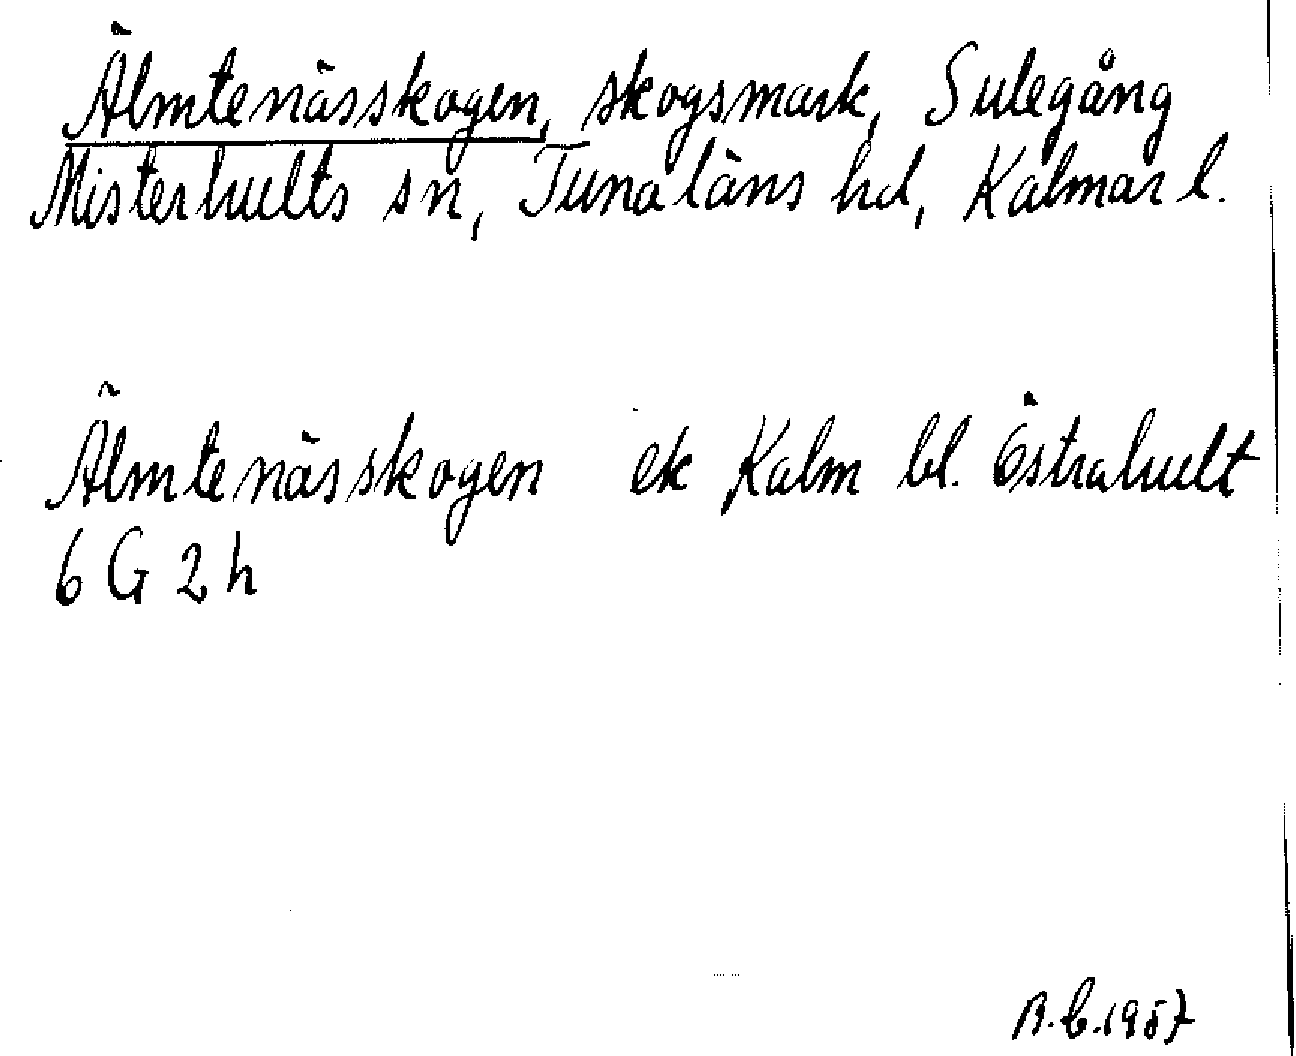 Älmtenässkogen, skogsmark, Sulegång
Misterhults sn, Tunaläns hd, Kalmar l.
Älmtenässkogen ek Kalm bl. Östrahult
6 G 2 h
B.C. 1957